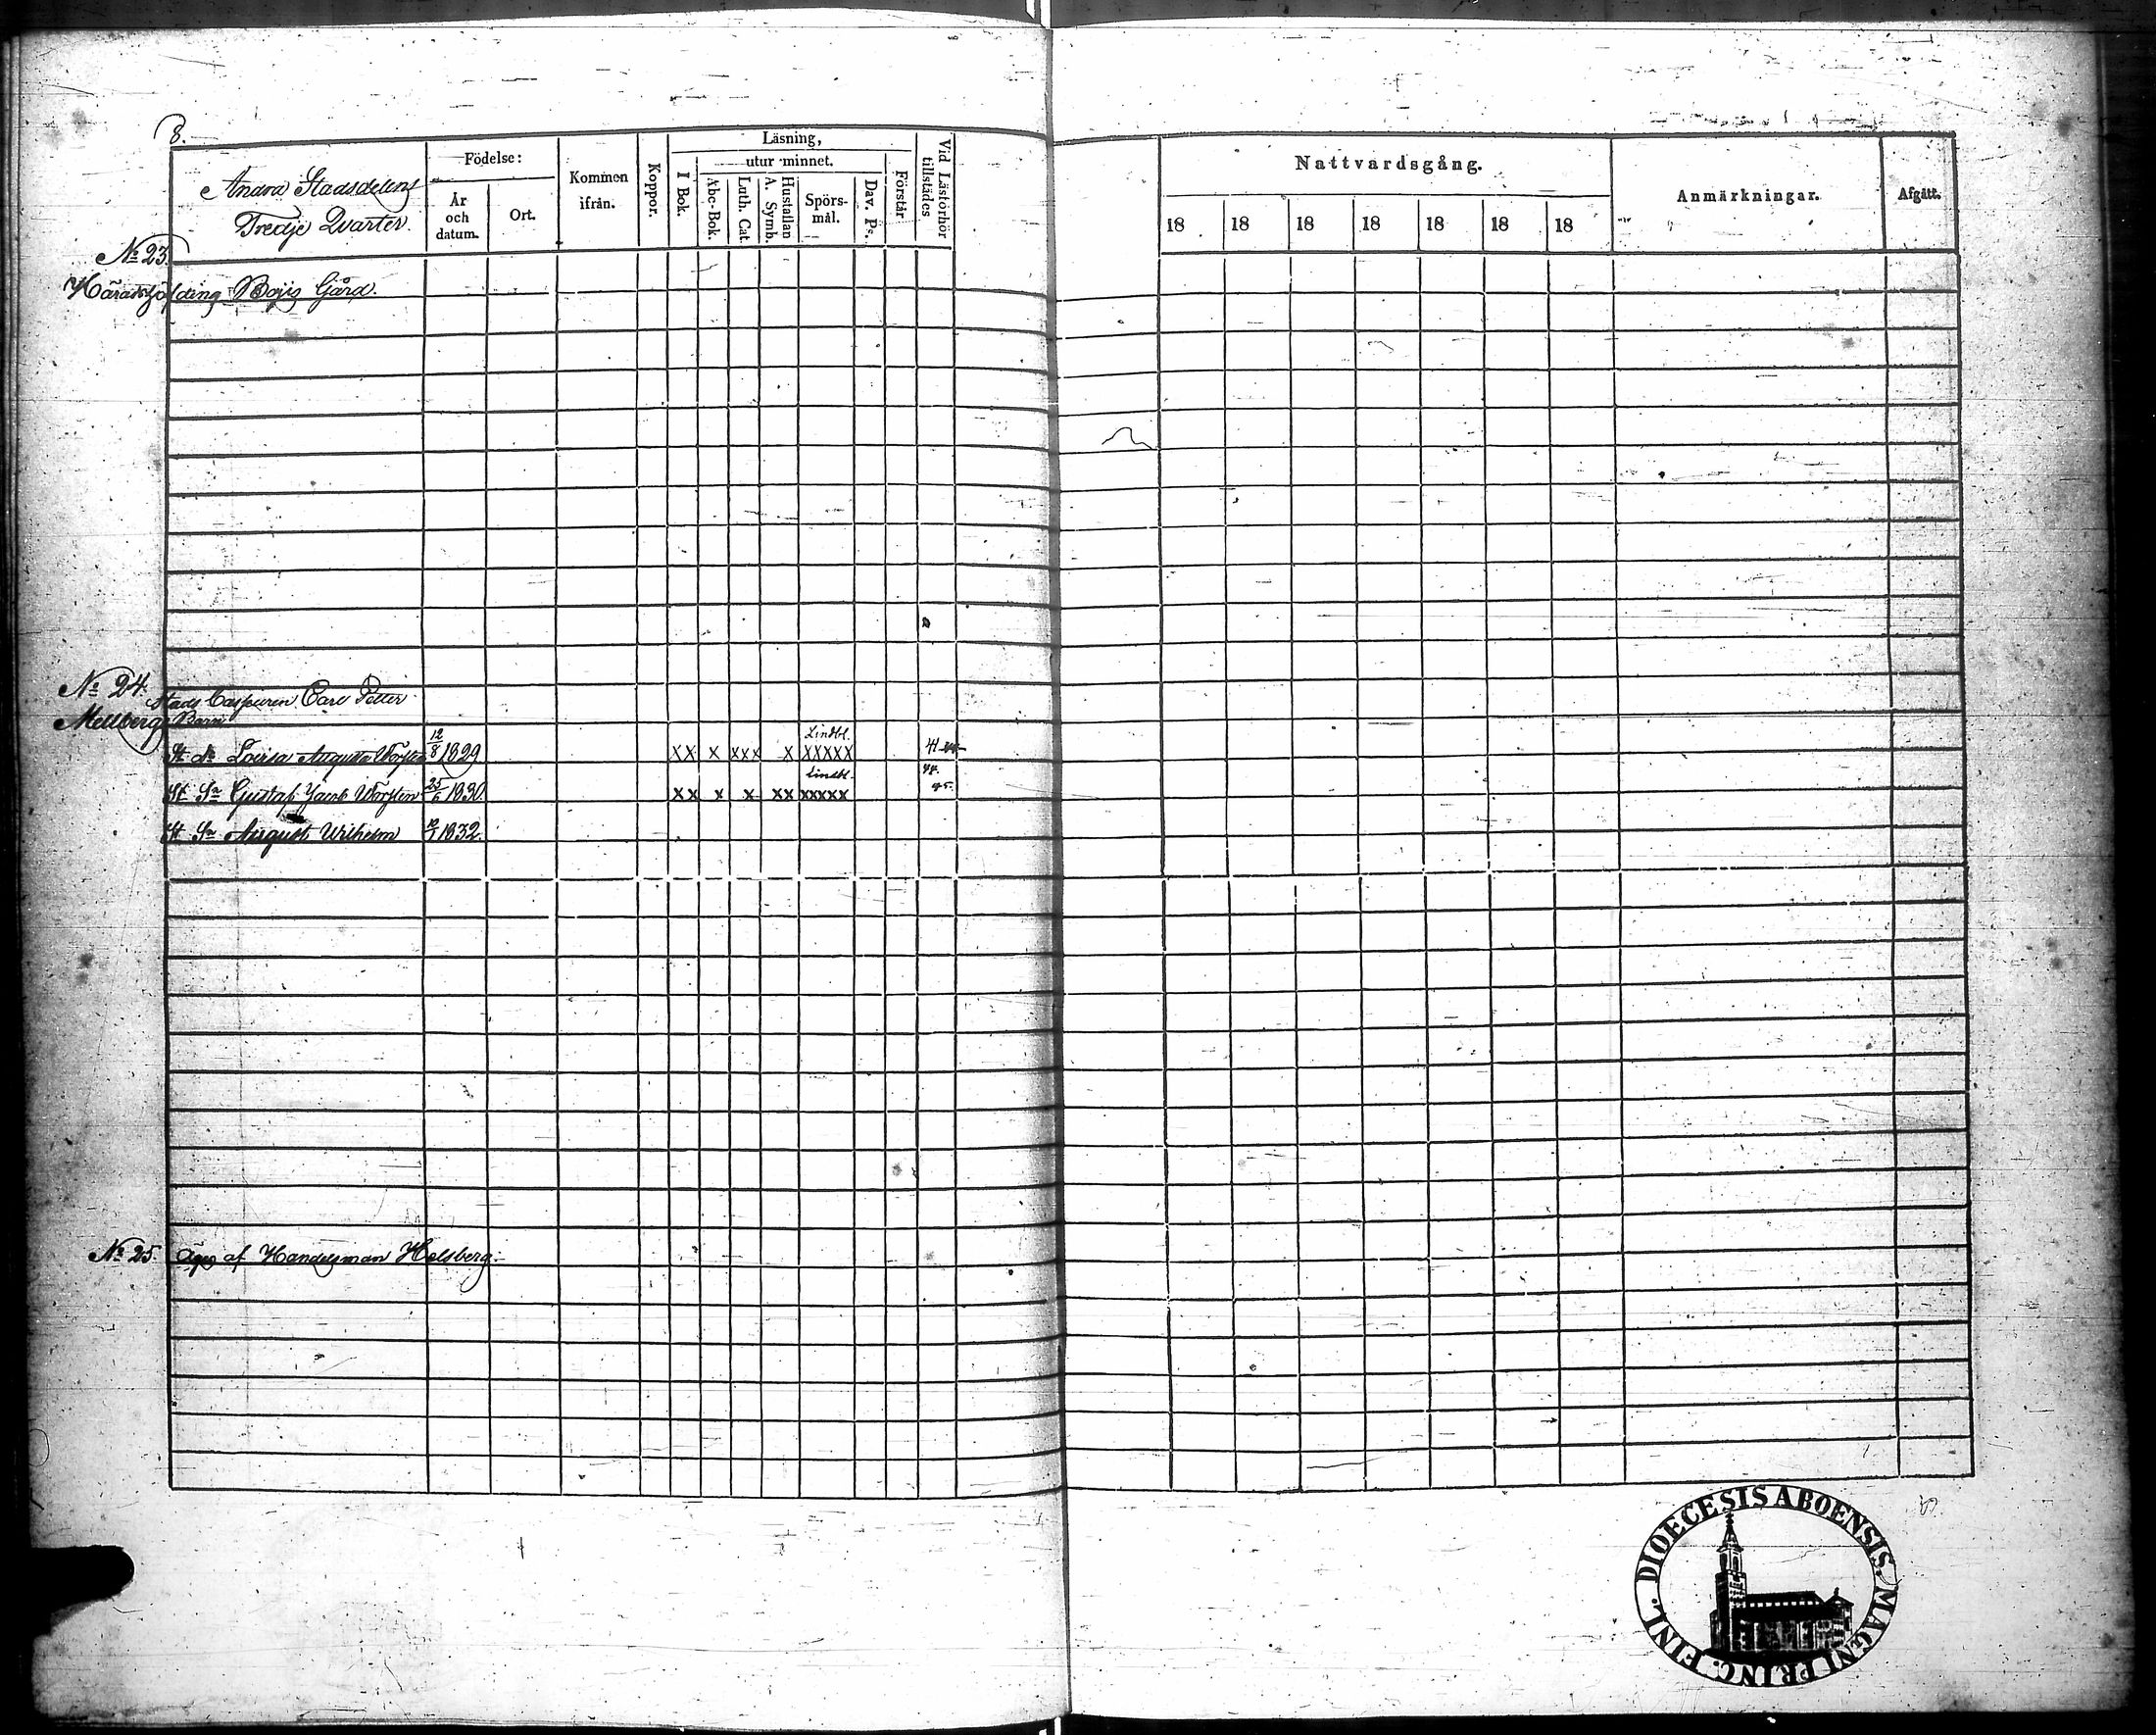 8.
Andra Stadsdelens
Tredje Qvarter.
Födelse:
År
och
datum.
Ort.
Kommen
ifrån.
Koppor.
Läsning,
I Bok.
utur minnet.
Abc-Bok.
Luth. Cat.
Hustaflan
A. Symb.
Spörs-
mål.
Dav. Ps.
Förstår
Vid Läsförhör
tillstädes
Nattvardsgång.
18 18 18 18 18 18 18
Anmärkningar.
Afgått.
No 23.
Häradshöfding Gård.
No 24.
Stads Carl Petter
Mellberg Barn
Lindbl.
St. dr Lovisa Augusta 12/8 1829 xx x xxx x xxxxx 41
Lindbl. 44.
St Sn Gustaf Jacob 25/6 1830. xx x x xx xxxxx 45.
St Sn August Wilhelm 1832.
No 25. äges af Handelsman Holsberg.
DIOECESIS ABOENSIS. MAGNI PRINC. FINL.